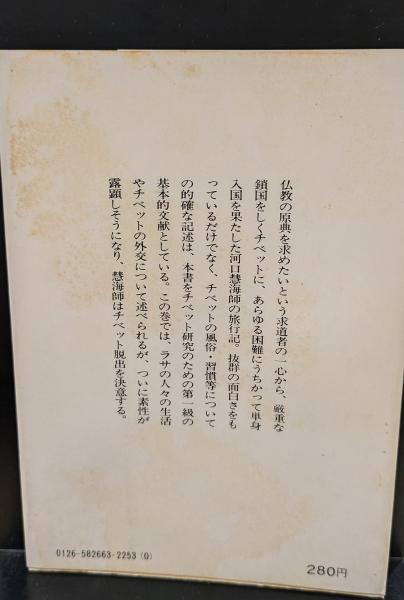 仏教の原典を求めたいという求道者の一心から、厳重な
鎖国をしくチベットに、あらゆる困難にうちかって単身
入国を果たした河口慧海師の旅行記。抜群の面白さをも
っているだけでなく、チベットの風俗・習慣等について
の的確な記述は、本書をチベット研究のための第一級の
基本的文献としている。この巻では、ラサの人々の生活
やチベットの外交について述べられるが、ついに素性が
露顕しそうになり、慧海師はチベット脱出を決意する。
0126-582663-2253(0)
280円